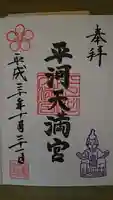 奉拝
平河天満宮
平成三十年十月二十一日